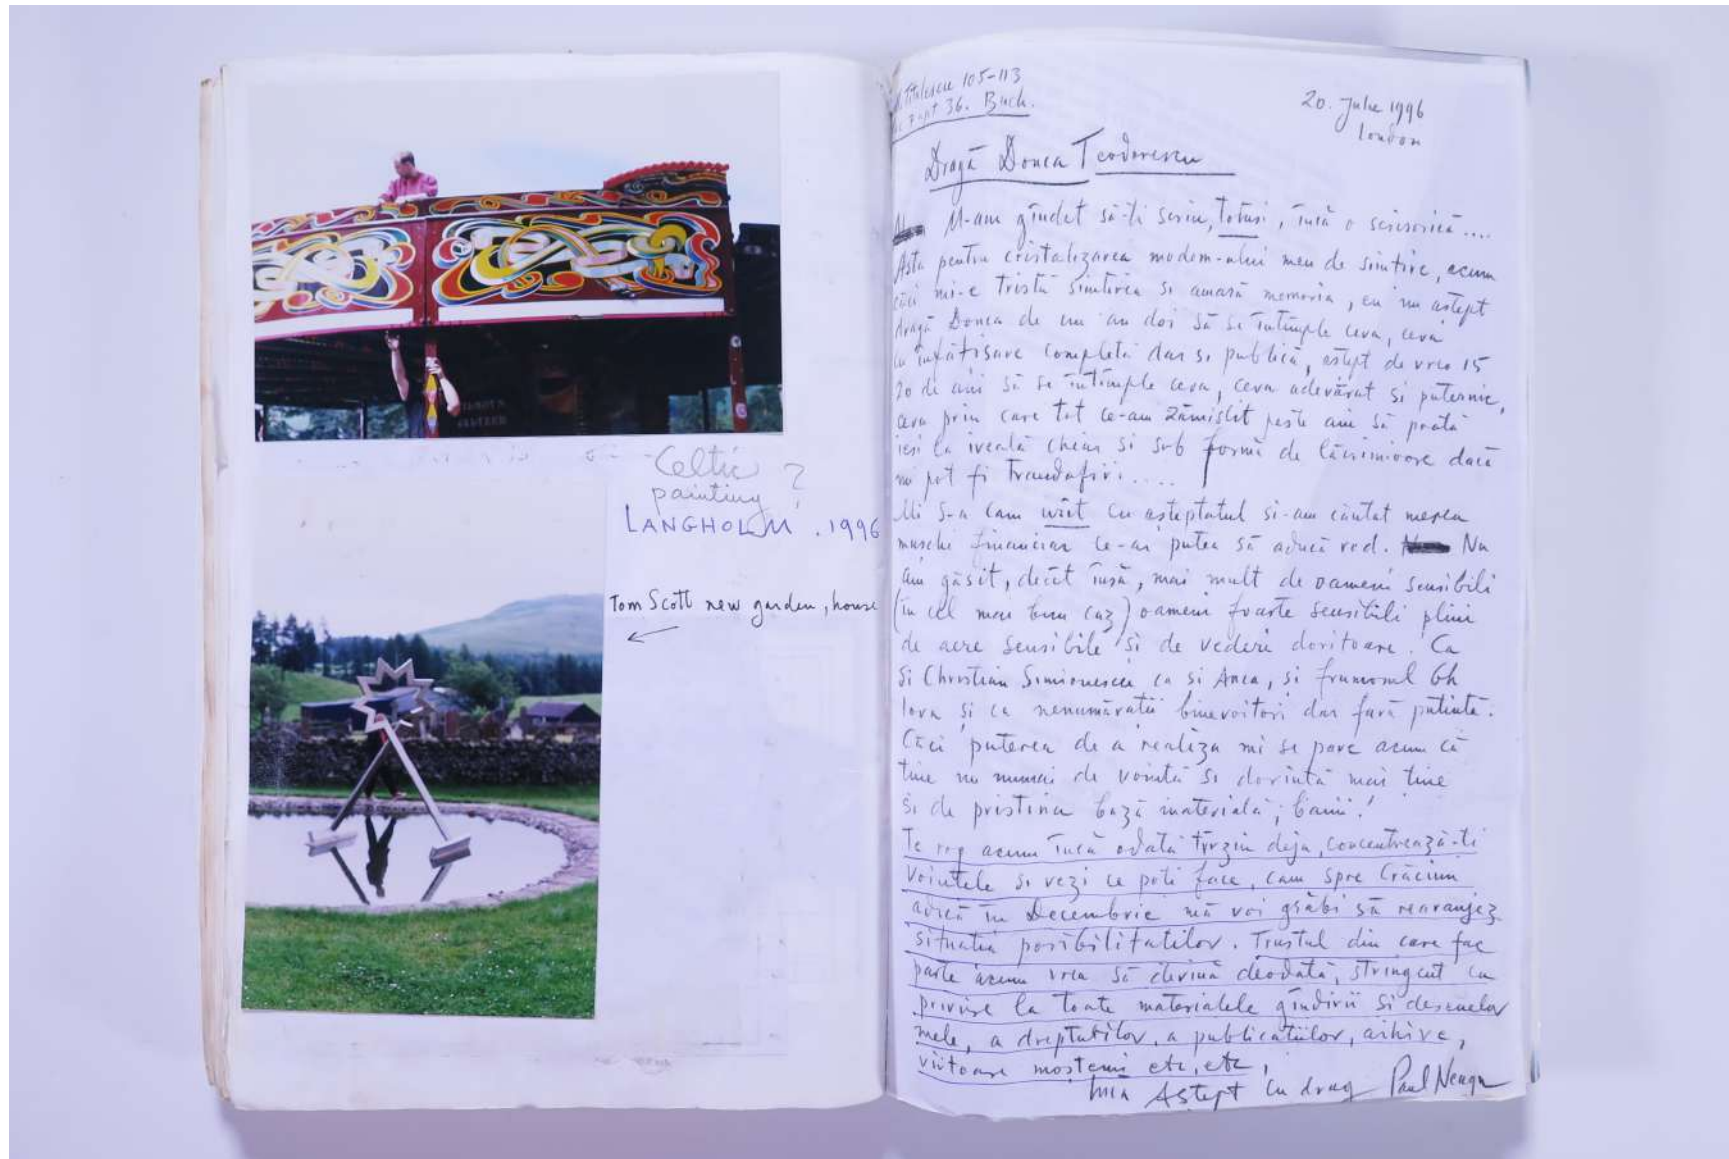 Celtic ?
painting
LANGHOLM . 1996
Tom Scott new garden, house
Titulescu 105-113
apt 36. Buch.
20. Julie 1996
London
Dragă Donca Teodorescu
M-am gîndit să-ti scriu, totusi, încă o scrisorică....
Asta pentru cristalizarea modem-ului meu de simtire, acum
căci mi-e tristă simtirea si amară memoria, eu nu astept
dragă Donca de un an doi să se întîmple ceva, ceva
cu înfătisare completă dar si publică, astept de vreo 15
20 de ani să se întîmple ceva, ceva adevărat si puternic,
ceva prin care tot ce-am zămislit peste ani să poată
iesi la iveală chear si sub formă de lăcrimioare dacă
nu pot fi trandafiri.....
Mi s-a cam urît cu așteptatul si-am căutat merea
muschi financiar ce-ar putea să aducă rod. Nu
am găsit, decît însă, mai mult de oameni sensibili
(în cel mai bun caz) oameni foarte sensibili plini
de aere sensibile si de vederi doritoare. Ca
si Christian Simionescu ca si Anca, si frumosul Gh
Iova și ca nenumăratii binevoitori dar fară putintă.
Căci puterea de a realiza mi se pare acum că
tine nu numai de vointă si dorintă mai tine
si de pristina bază materială; banii!
Te rog acum încă odată tîrziu deja, concentrează-ti
vointele si vezi ce poti face, cam spre Crăciun
adică în Decembrie mă voi grăbi să rearanjez
situatia posibilitatilor. Trustul din care fac
parte acum vrea să devină deodată, stringent cu
privire la toate materialele gîndirii si desenelor
mele, a dreptutilor, a publicatiilor, arhive,
viitoare mosteniri etc, etc,
Astept cu drag Paul Neagu